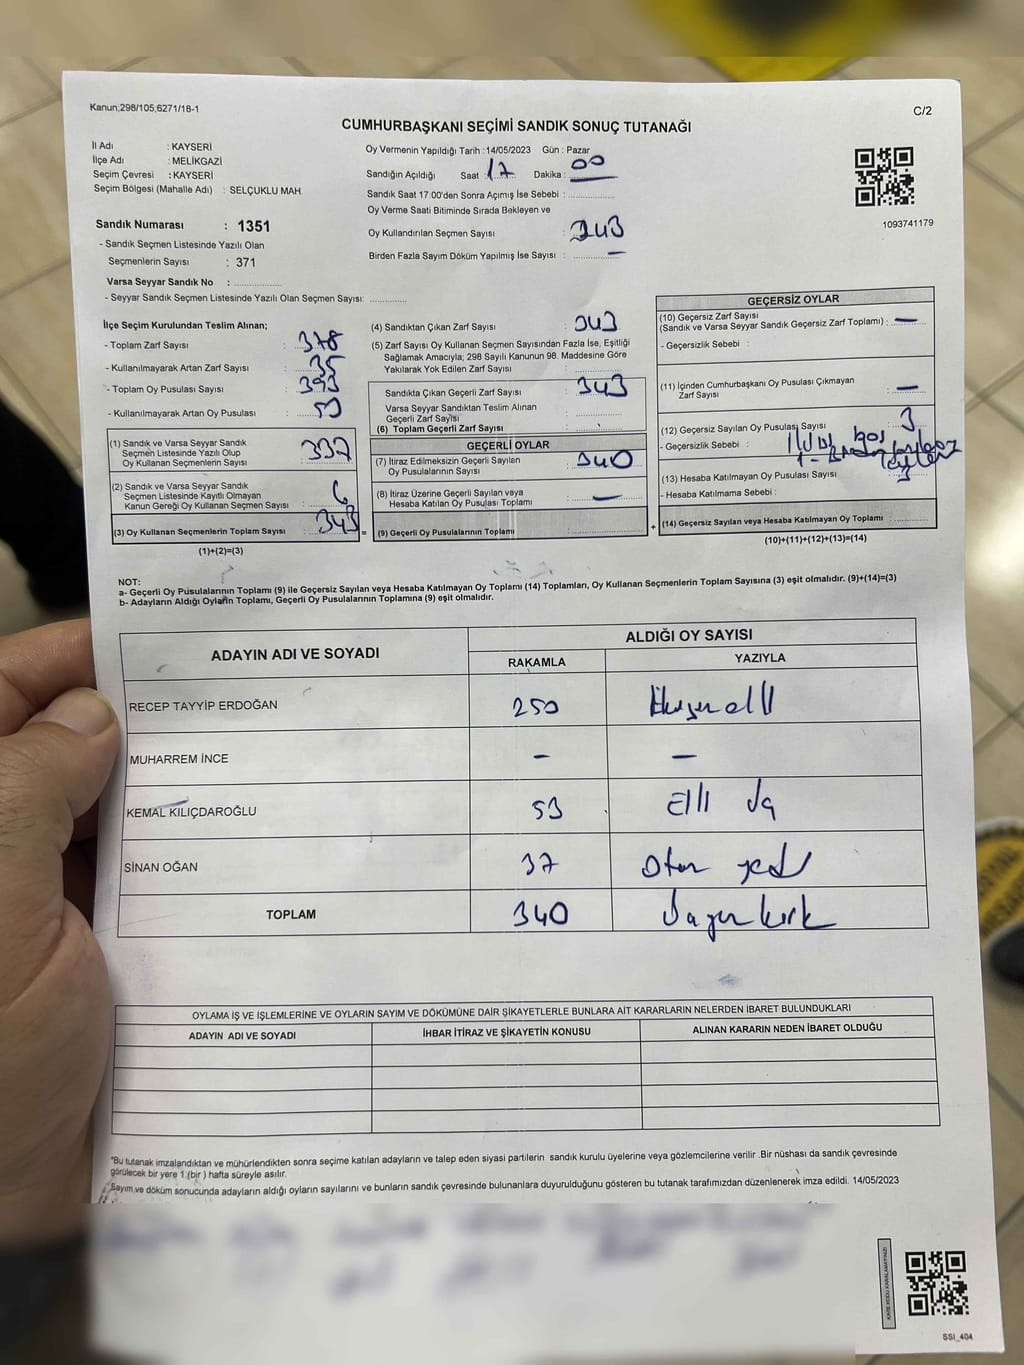 Kanun,298/105,6271/18-1
C/2
CUMHURBAŞKANI SEÇİMİ SANDIK SONUÇ TUTANAĞI
İl Adı : KAYSERİ
İlçe Adı : MELİKGAZİ
Seçim Çevresi : KAYSERİ
Seçim Bölgesi (Mahalle Adı) : SELÇUKLU MAH.
Sandık Numarası : 1351
- Sandık Seçmen Listesinde Yazılı Olan
Seçmenlerin Sayısı : 371
Varsa Seyyar Sandık No :
- Seyyar Sandık Seçmen Listesinde Yazılı Olan Seçmen Sayısı:
Oy Vermenin Yapıldığı Tarih :14/05/2023 Gün : Pazar
Sandığın Açıldığı Saat : 17 Dakika : 00
Sandık Saat 17:00'den Sonra Açımış İse Sebebi :
Oy Verme Saati Bitiminde Sırada Bekleyen ve
Oy Kullandırılan Seçmen Sayısı : 343
Birden Fazla Sayım Döküm Yapılmış İse Sayısı : —
1093741179
İlçe Seçim Kurulundan Teslim Alınan;
- Toplam Zarf Sayısı : 378
- Kullanılmayarak Artan Zarf Sayısı : 35
- Toplam Oy Pusulası Sayısı : 393
- Kullanılmayarak Artan Oy Pusulası : 50
(1) Sandık ve Varsa Seyyar Sandık
Seçmen Listesinde Yazılı Olup
Oy Kullanan Seçmenlerin Sayısı : 337
(2) Sandık ve Varsa Seyyar Sandık
Seçmen Listesinde Kayıtlı Olmayan
Kanun Gereği Oy Kullanan Seçmen Sayısı : 6
(3) Oy Kullanan Seçmenlerin Toplam Sayısı : 343
(1)+(2)=(3)
=
(4) Sandıktan Çıkan Zarf Sayısı : 343
(5) Zarf Sayısı Oy Kullanan Seçmen Sayısından Fazla İse, Eşitliği
Sağlamak Amacıyla; 298 Sayılı Kanunun 98. Maddesine Göre
Yakılarak Yok Edilen Zarf Sayısı :
Sandıkta Çıkan Geçerli Zarf Sayısı : 343
Varsa Seyyar Sandıktan Teslim Alınan
Geçerli Zarf Sayısı :
(6) Toplam Geçerli Zarf Sayısı :
GEÇERLİ OYLAR
(7) İtiraz Edilmeksizin Geçerli Sayılan
Oy Pusulalarının Sayısı : 340
(8) İtiraz Üzerine Geçerli Sayılan veya
Hesaba Katılan Oy Pusulası Toplamı : —
(9) Geçerli Oy Pusulalarının Toplamı :
+
GEÇERSİZ OYLAR
(10) Geçersiz Zarf Sayısı
(Sandık ve Varsa Seyyar Sandık Geçersiz Zarf Toplamı) : —
- Geçersizlik Sebebi :
(11) İçinden Cumhurbaşkanı Oy Pusulası Çıkmayan
Zarf Sayısı : —
(12) Geçersiz Sayılan Oy Pusulası Sayısı : 3
- Geçersizlik Sebebi :
(13) Hesaba Katılmayan Oy Pusulası Sayısı : 3
- Hesaba Katılmama Sebebi :
(14) Geçersiz Sayılan veya Hesaba Katılmayan Oy Toplamı :
(10)+(11)+(12)+(13)=(14)
NOT:
a- Geçerli Oy Pusulalarının Toplamı (9) ile Geçersiz Sayılan veya Hesaba Katılmayan Oy Toplamı (14) Toplamları, Oy Kullanan Seçmenlerin Toplam Sayısına (3) eşit olmalıdır. (9)+(14)=(3)
b- Adayların Aldığı Oyların Toplamı, Geçerli Oy Pusulalarının Toplamına (9) eşit olmalıdır.
ADAYIN ADI VE SOYADI
ALDIĞI OY SAYISI
RAKAMLA YAZIYLA
RECEP TAYYİP ERDOĞAN 250 İkiyüzelli
MUHARREM İNCE – —
KEMAL KILIÇDAROĞLU 53 Elli üç
SİNAN OĞAN 37 Otuz yedi
TOPLAM 340 Üçyüz kırk
OYLAMA İŞ VE İŞLEMLERİNE VE OYLARIN SAYIM VE DÖKÜMÜNE DAİR ŞİKAYETLERLE BUNLARA AİT KARARLARIN NELERDEN İBARET BULUNDUKLARI
ADAYIN ADI VE SOYADI İHBAR İTİRAZ VE ŞİKAYETİN KONUSU ALINAN KARARIN NEDEN İBARET OLDUĞU
*Bu tutanak imzalandıktan ve mühürlendikten sonra seçime katılan adayların ve talep eden siyasi partilerin sandık kurulu üyelerine veya gözlemcilerine verilir .Bir nüshası da sandık çevresinde
görülecek bir yere 1 (bir ) hafta süreyle asılır.
Sayım ve döküm sonucunda adayların aldığı oyların sayılarını ve bunların sandık çevresinde bulunanlara duyurulduğunu gösteren bu tutanak tarafımızdan düzenlenerek imza edildi. 14/05/2023
KARE KODU KARALAMAYINIZ!
SSI_404